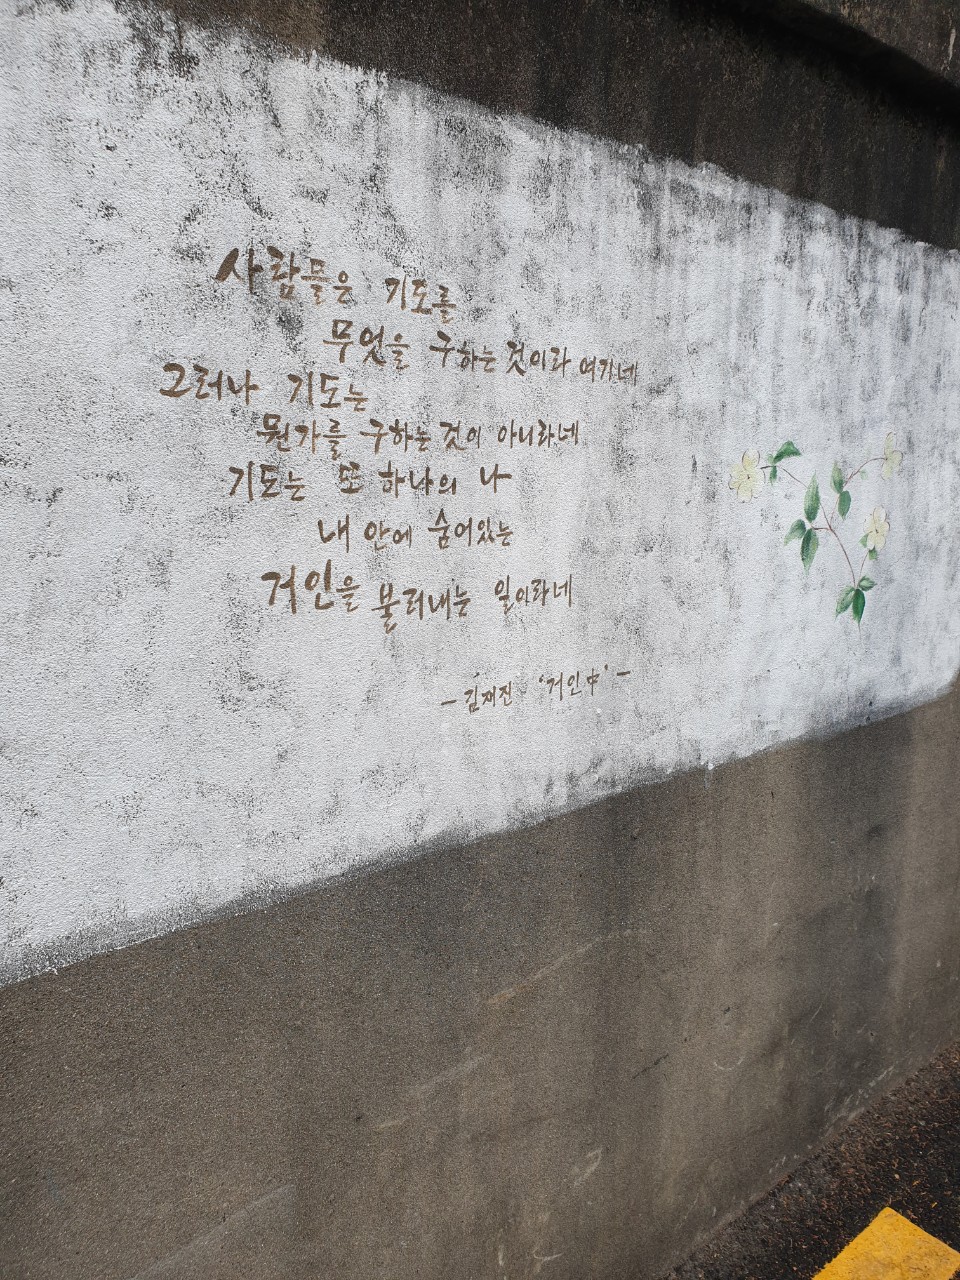 사람들은 기도를
무엇을 구하는 것이라 여기네
그러나 기도는
뭔가를 구하는 것이 아니라네
기도는 또 하나의 나
내 안에 숨어있는
거인을 불러내는 일이라네
- 김재진 '거인中' -